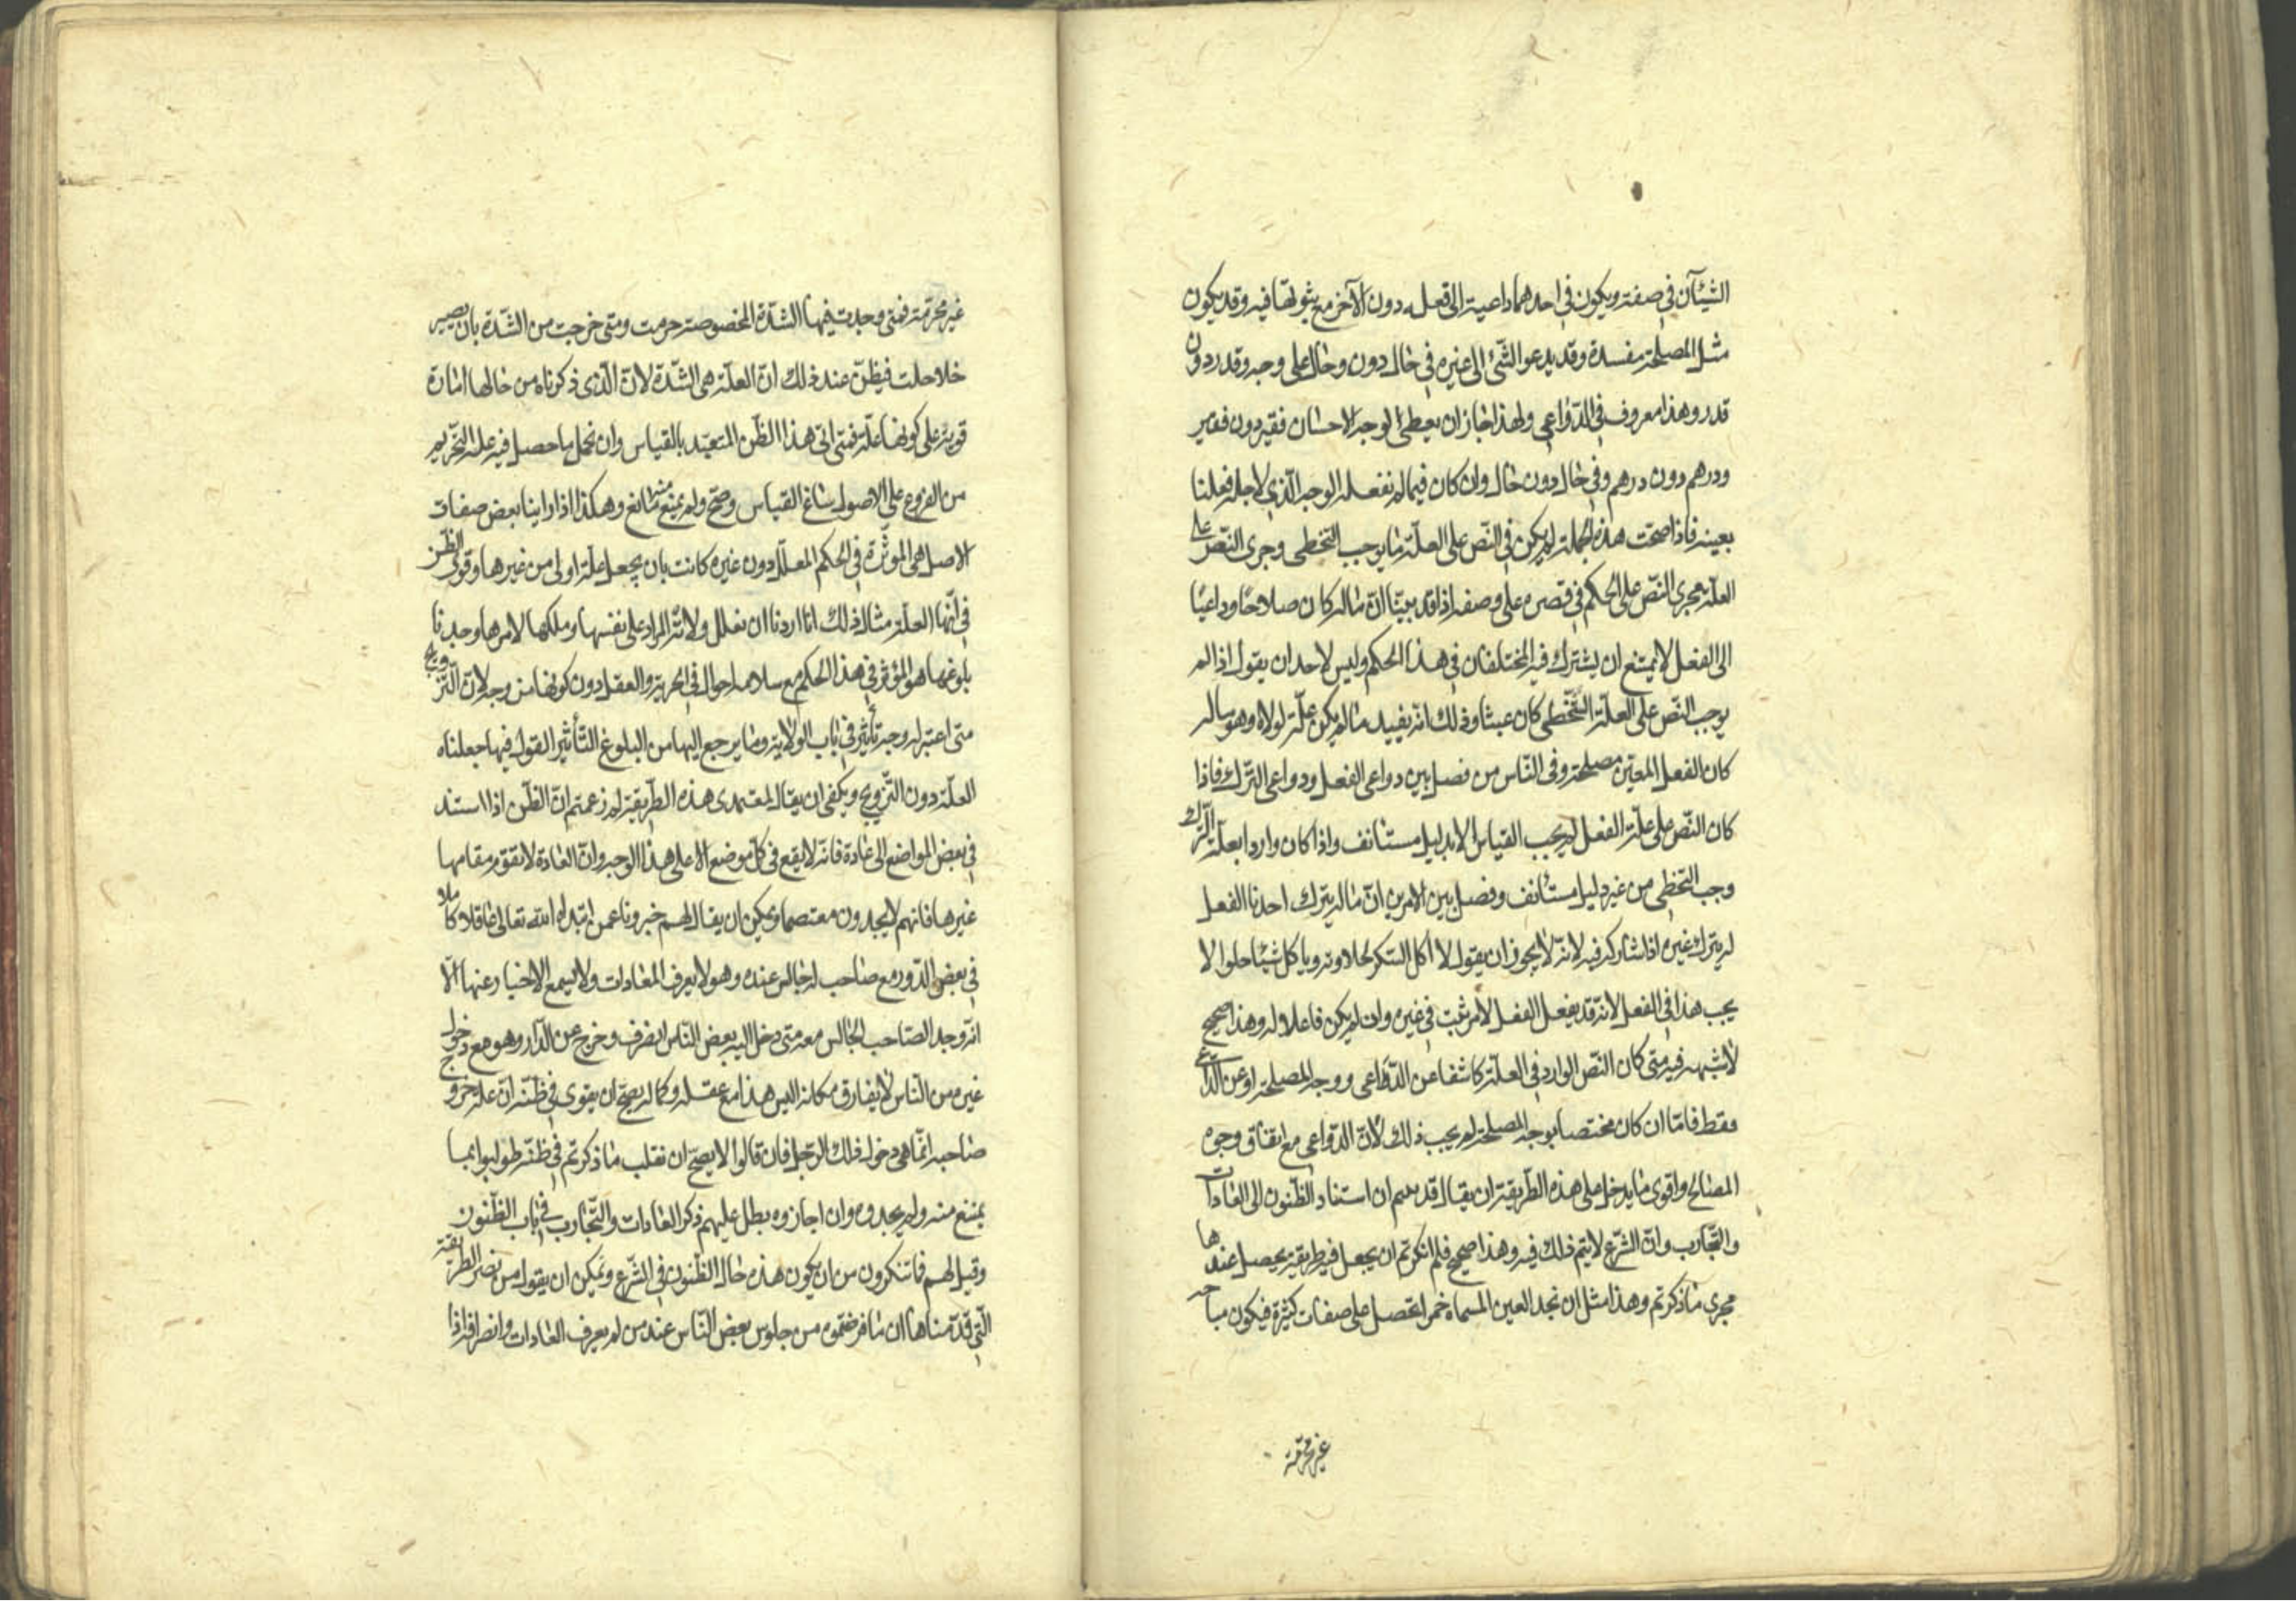 الشيئان في صفة ويكون في احدهما داعية الى فعله دون الآخر مع ثبوتها فيه وقد يكون
مثل المصلحة مفسدة وقد يدعو الشئ الى غيره في حال دون وحال على وجه وقدر دون
قدر وهذا معروف في الدّواعى ولهذا جاز ان يعطى لوجه الاحسان فقير دون فقير
ودرهم دون درهم وفي حال دون حال وان كان فيما لم نفعله الوجه الّذي لاجله فعلنا
بعينه فاذا صحت هذه الجملة لم يكن في النّص على العلّة ما يوجب التخطى وجرى النّص على
العلّة مجرى النّص على الحكم في قصره على وصفه اذا قد بيّنا انّ ماله كان صلاحًا وداعيًا
الى الفعل لا يمتنع ان يشترك فيه المختلفان في هذا الحكم وليس لاحد ان يقول اذا لم
يوجب النّص على العلّة التّخطى كان عبثا وذلك انه يفيد ما لم يكن علّة لولاه وهو ماله
كان الفعل المعيّن مصلحة وفى النّاس من فصل بين دواعى الفعل ودواعى التّرك فاذا
كان النّص على علّة الفعل لم يجب القياس الا بدليل مستانف واذا كان واردا بعلّة التّرك
وجب التّخطى من غير دليل مستانف وفصل بين الامرين انّ ماله يترك احدنا الفعل
له يترك غيره اذا شاركه فيه لانّه لا يجوز ان يقول لا آكل السّكر لحلاوته وياكل شيئا حلوا لا
يجب هذا في الفعل لانّه قد يفعل الفعل لامر ثبت في غيره وان لم يكن فاعلا له وهذا صحيح
لا شبهة فيه متى كان النّص الوارد في العلّة كاشفا عن الدّواعى ووجه المصلحة او عن الدّاعى
فقط فامّا ان كان مختصا بوجه المصلحة لم يجب ذلك لانّ الدّواعى مع اتفاق وجوه
المصالح واقوى ما يدخل على هذه الطّريقة ان يقال قد استناد الظّنون الى العادات
والتّجارب وانّ الشّرع لا يتم ذلك فيه وهذا صحيح فلم انكرتم ان يجعل فيه طريقة يحصل عندها
مجرى ما ذكرتم وهذا مثل ان نجد العين المسماة خمرا تحصل على صفات كثيرة فيكون مباحة
غير محرّمة
غير محرّمة فمتى وجدت فيها الشّدّة المخصوصة حرمت ومتى خرجت من الشّدّة بان يصير
خلا حلت فيظنّ عند ذلك انّ العلّة هى الشّدّة لانّ الّذى ذكرناه من حالها امارة
قويّة على كونها علّة فمتى اتى هذا الظّن المتعبّد بالقياس وان نحمل ما حصل فيه علة التّحريم
من الفروع على الاصول ساغ القياس وصحّ ولم يمنع منه مانع وهكذا اذا راينا بعض صفات
الاصل هى الموثّرة في الحكم المعلّل دون غيره كانت بان يجعل علّة اولى من غيرها وقوى الظّن
في انّها العلّة مثال ذلك انا اردنا ان نعلل ولاية المراد على نفسها وملكها لامرها وجدنا
بلوغها هو المؤثّر في هذا الحكم مع سلامة احوال في الحرية والعقل دون كونها من وجه لان التّزويج
متى اعتبر لم وجد تأثير في باب الولاية وما يرجع اليها من البلوغ التّأثير القول فيها جعلناه
العلّة دون التّزويج ويكفى ان يقال لمعتمدى هذه الطّريقة لم زعمتم انّ الظّن اذا استند
في بعض المواضع الى عادة فانّه لا يقع في كلّ موضع الا على هذا الوجه وانّ العادة لا يقوم مقامها
غيرها فانهم لا يجدون معتصما ويمكن ان يقال لهم خبرونا عمن ابتداه الله تعالى عاقلا كاملا
في بعض الدّور مع صاحب له جالس عنده وهو لا يعرف العادات ولا يسمع الاخبار عنها الّا
انّه وجد الصّاحب الجالس معه متى دخل اليه بعض النّاس انصرف وخرج عن الدّار وهو مع دخول
غيره من النّاس لا يفارق مكانه اليس هذا مع عقله وكماله يصحّ ان يقوى في ظنّه انّ علة خروج
صاحبه انّما هى دخول ذلك الرّجل فان قالوا لا يصحّ ان نقلب ما ذكرتم في ظنّه طولبوا بما
يمنع منه ولم يجدوه وان اجازوه بطل عليهم ذكر العادات والتّجارب في باب الظّنون
وقيل لهم فما تنكرون من ان يكون هذه حال الظّنون في الشّرع ويمكن ان يقول من نصر الطّريقة
الّتى قدّمناها ان ما فرضتموه من جلوس بعض النّاس عند من لم يعرف العادات وانصرافه اذا